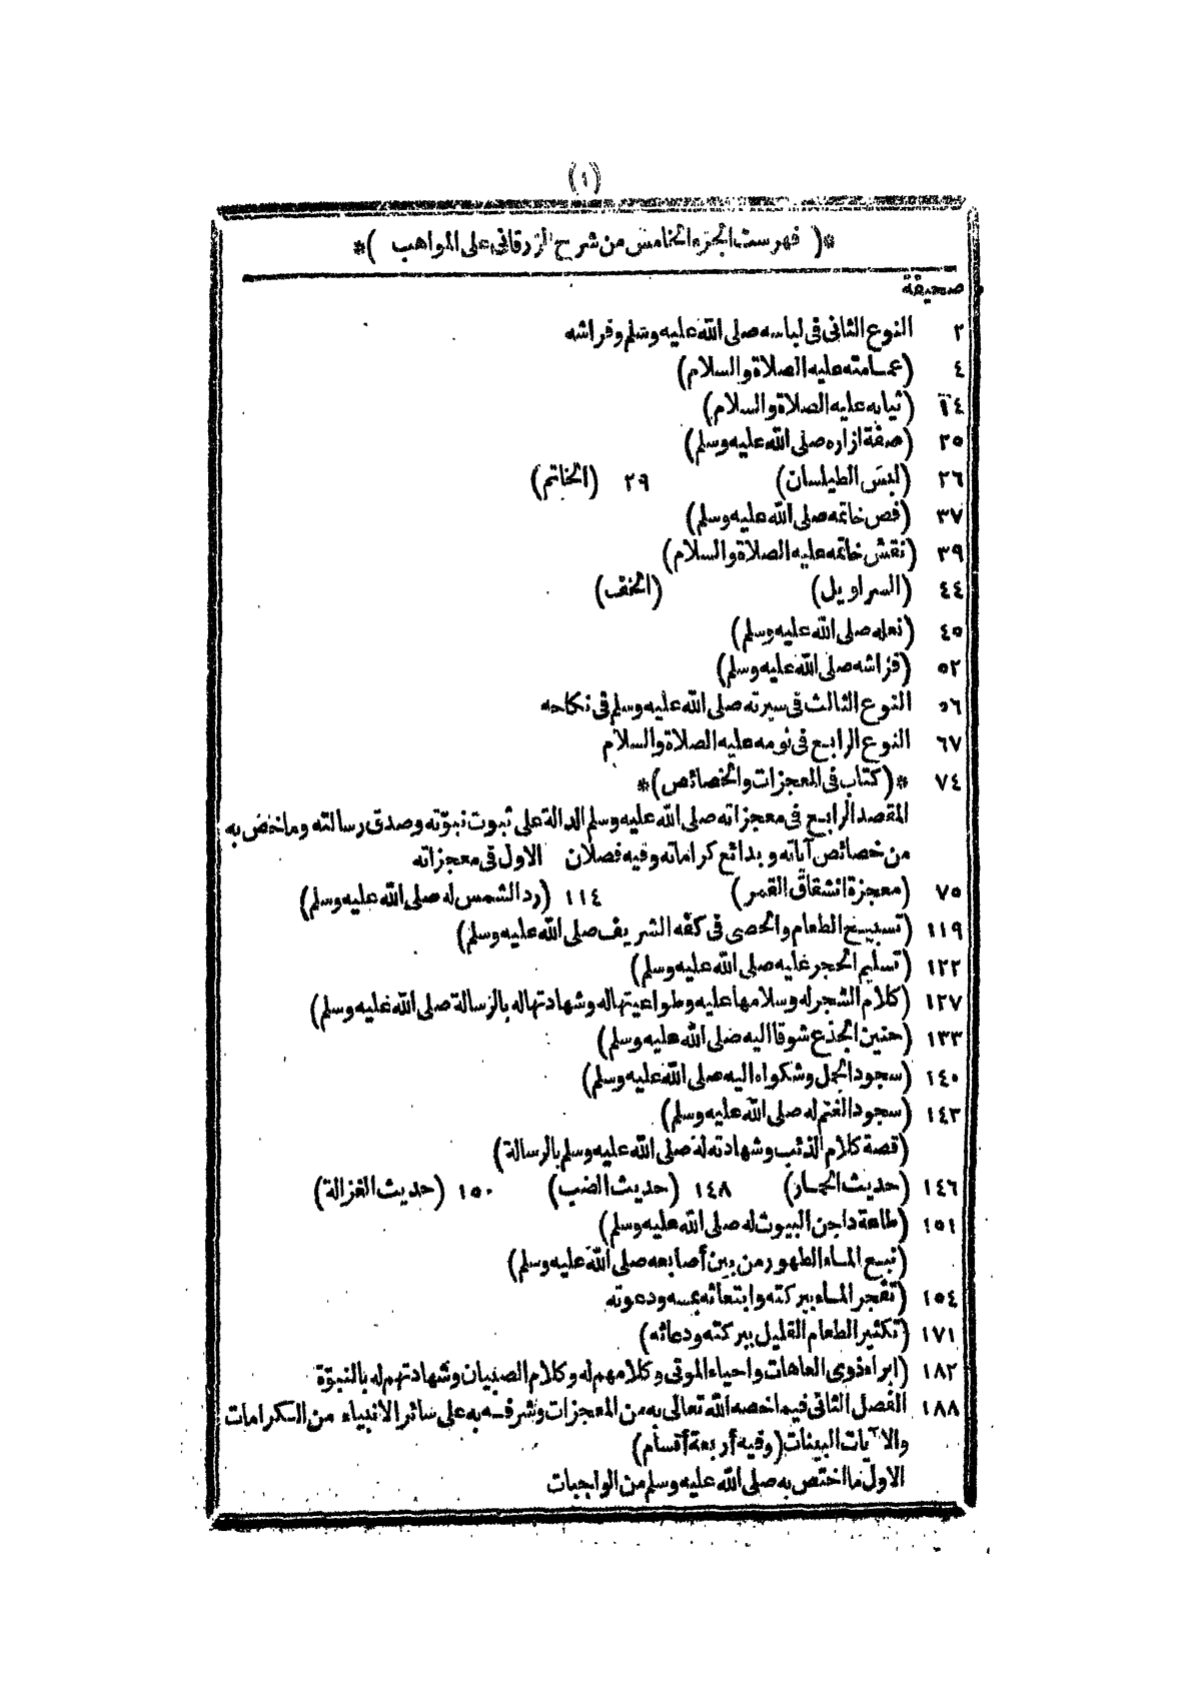 (١)
*( فهرست الجزء الخامس من شرح الزرقاني على المواهب )*
صحيفة
٢ النوع الثانى فى لباسه صلى الله عليه وسلم وفراشه
٤ (عمامته عليه الصلاة والسلام)
١٤ (ثيابه عليه الصلاة والسلام)
٢٥ (صفة ازاره صلى الله عليه وسلم)
٢٦ (لبس الطيلسان) ٢٩ (الخاتم)
٣٧ (فص خاتمه صلى الله عليه وسلم)
٣٩ (نقش خاتمه عليه الصلاة والسلام)
٤٤ (السراويل) (الخف)
٤٥ (نعله صلى الله عليه وسلم)
٥٢ (فراشه صلى الله عليه وسلم)
٥٦ النوع الثالث فى سيرته صلى الله عليه وسلم فى نكاحه
٦٧ النوع الرابع فى نومه عليه الصلاة والسلام
٧٤ *(كتاب فى المعجزات والخصائص)*
المقصد الرابع فى معجزاته صلى الله عليه وسلم الدالة على ثبوت نبوّته وصدق رسالته وما خص به
من خصائص آياته وبدائع كراماته وفيه فصلان الاول فى معجزاته
٧٥ (معجزة انشقاق القمر) ١١٤ (رد الشمس له صلى الله عليه وسلم)
١١٩ (تسبيح الطعام والحصى فى كفه الشريف صلى الله عليه وسلم)
١٢٢ (تسليم الحجر عليه صلى الله عليه وسلم)
١٢٧ (كلام الشجر له وسلامها عليه وطواعيتها له وشهادتها له بالرسالة صلى الله عليه وسلم)
١٣٣ (حنين الجذع شوقا اليه صلى الله عليه وسلم)
١٤٠ (سجود الجمل وشكواه اليه صلى الله عليه وسلم)
١٤٣ (سجود الغنم له صلى الله عليه وسلم)
(قصة كلام الذئب وشهادته له صلى الله عليه وسلم بالرسالة)
١٤٦ (حديث الحمار) ١٤٨ (حديث الضب) ١٥٠ (حديث الغزالة)
١٥١ (طاعة داجن البيوت له صلى الله عليه وسلم)
(نبع الماء الطهور من بين أصابعه صلى الله عليه وسلم)
١٥٤ (تفجر الماء ببركته وابتعاثه بمسه ودعوته
١٧١ (تكثير الطعام القليل ببركته ودعائه)
١٨٢ (ابراء ذوى العاهات واحياء الموتى وكلامهم له وكلام الصبيان وشهادتهم له بالنبوّة
١٨٨ الفصل الثانى فيما اخصه الله تعالى به من المعجزات وشرفه به على سائر الانبياء من الكرامات
والآيات البينات (وفيه أربعة أقسام)
الاول ما اختص به صلى الله عليه وسلم من الواجبات